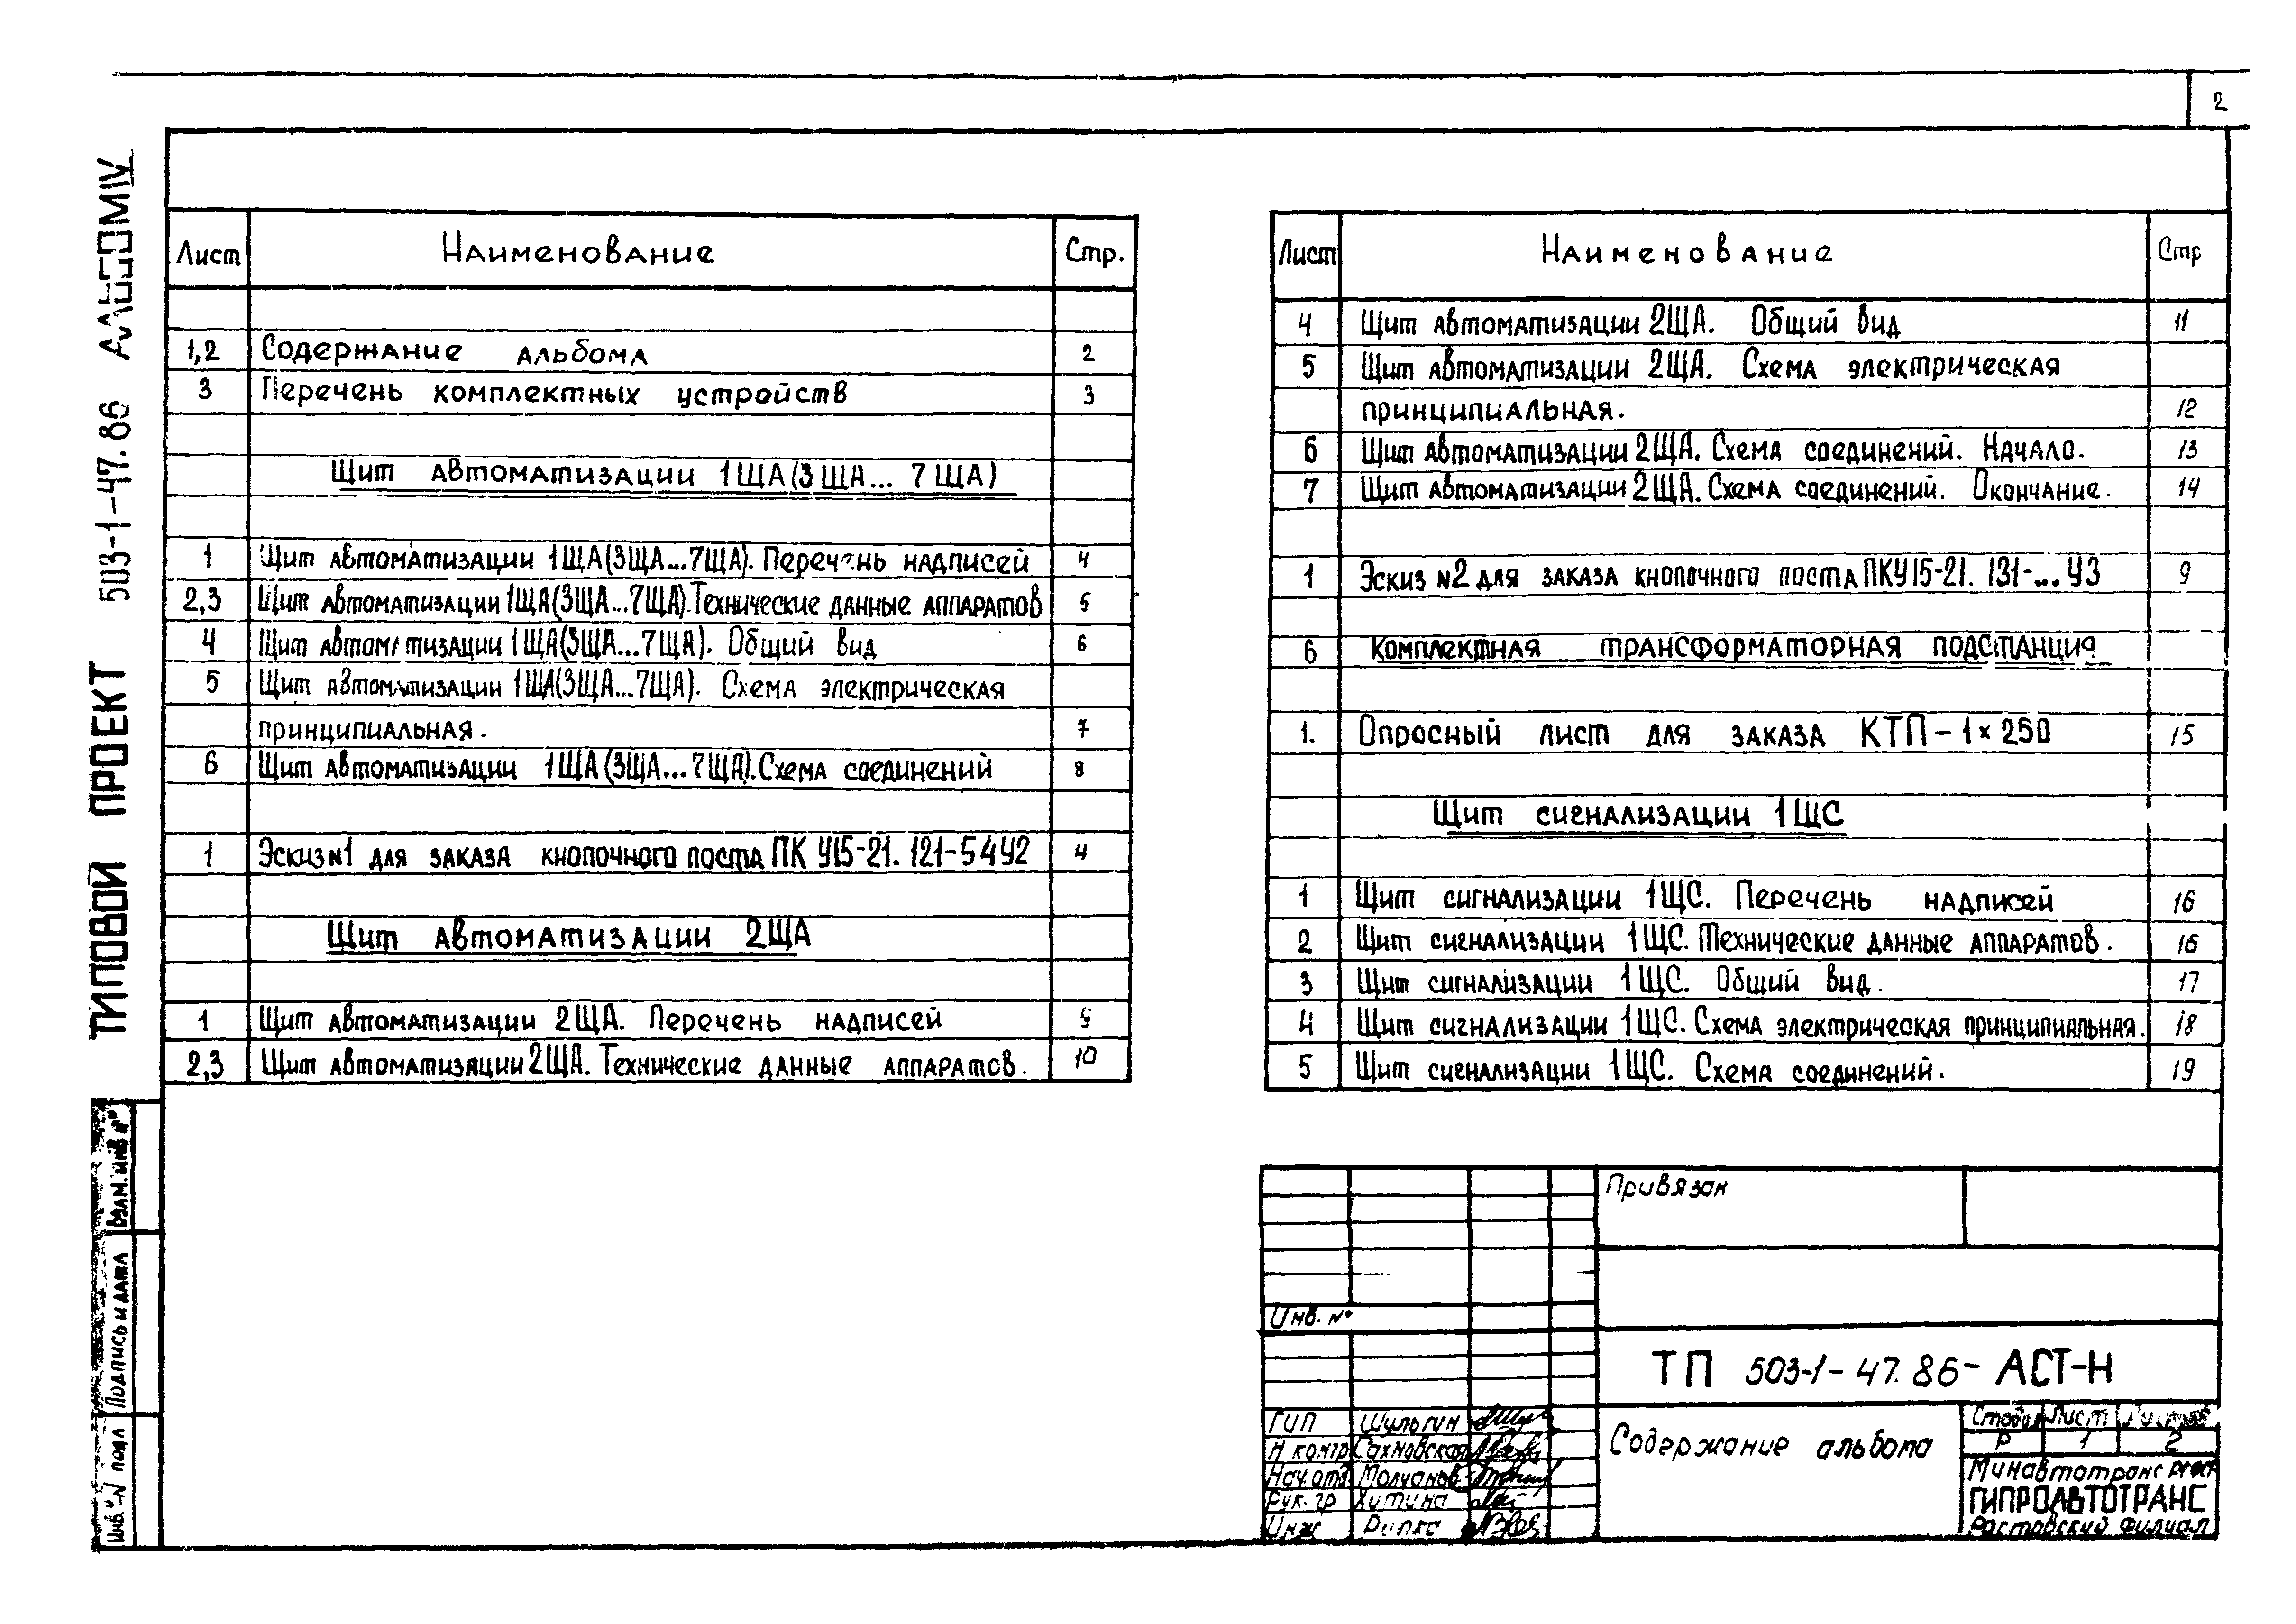 2
ТИПОВОЙ ПРОЕКТ 503-1-47.86 АЛЬБОМ IV
Лист Наименование Стр.
1,2 Содержание альбома 2
3 Перечень комплектных устройств 3
Щит автоматизации 1ЩА(3ЩА... 7ЩА)
1 Щит автоматизации 1ЩА(3ЩА...7ЩА). Перечень надписей 4
2,3 Щит автоматизации 1ЩА(3ЩА...7ЩА). Технические данные аппаратов 5
4 Щит автоматизации 1ЩА(3ЩА...7ЩА). Общий вид 6
5 Щит автоматизации 1ЩА(3ЩА...7ЩА). Схема электрическая
принципиальная. 7
6 Щит автоматизации 1ЩА(3ЩА...7ЩА). Схема соединений 8
1 Эскиз №1 для заказа кнопочного поста ПКУ15-21. 121-54У2 4
Щит автоматизации 2ЩА
1 Щит автоматизации 2ЩА. Перечень надписей 9
2,3 Щит автоматизации 2ЩА. Технические данные аппаратов. 10
Лист Наименование Стр
4 Щит автоматизации 2ЩА. Общий вид 11
5 Щит автоматизации 2ЩА. Схема электрическая
принципиальная. 12
6 Щит автоматизации 2ЩА. Схема соединений. Начало. 13
7 Щит автоматизации 2ЩА. Схема соединений. Окончание. 14
1 Эскиз №2 для заказа кнопочного поста ПКУ15-21. 131-...У3 9
6 Комплектная трансформаторная подстанция
1. Опросный лист для заказа КТП-1×250 15
Щит сигнализации 1ЩС
1 Щит сигнализации 1ЩС. Перечень надписей 16
2 Щит сигнализации 1ЩС. Технические данные аппаратов. 16
3 Щит сигнализации 1ЩС. Общий вид. 17
4 Щит сигнализации 1ЩС. Схема электрическая принципиальная. 18
5 Щит сигнализации 1ЩС. Схема соединений. 19
Взам. инв №
Подпись и дата
Инв. № подл
Привязан
Инв. №
ТП 503-1-47.86-АСТ-Н
ГИП Шульгин
Н контр Сахновская
Нач. отд. Молчанов
Рук. гр Хитина
Инж
Содержание альбома
Стадия Лист Листов
Р 1 2
Минавтотранс
ГИПРОАВТОТРАНС
Ростовский филиал